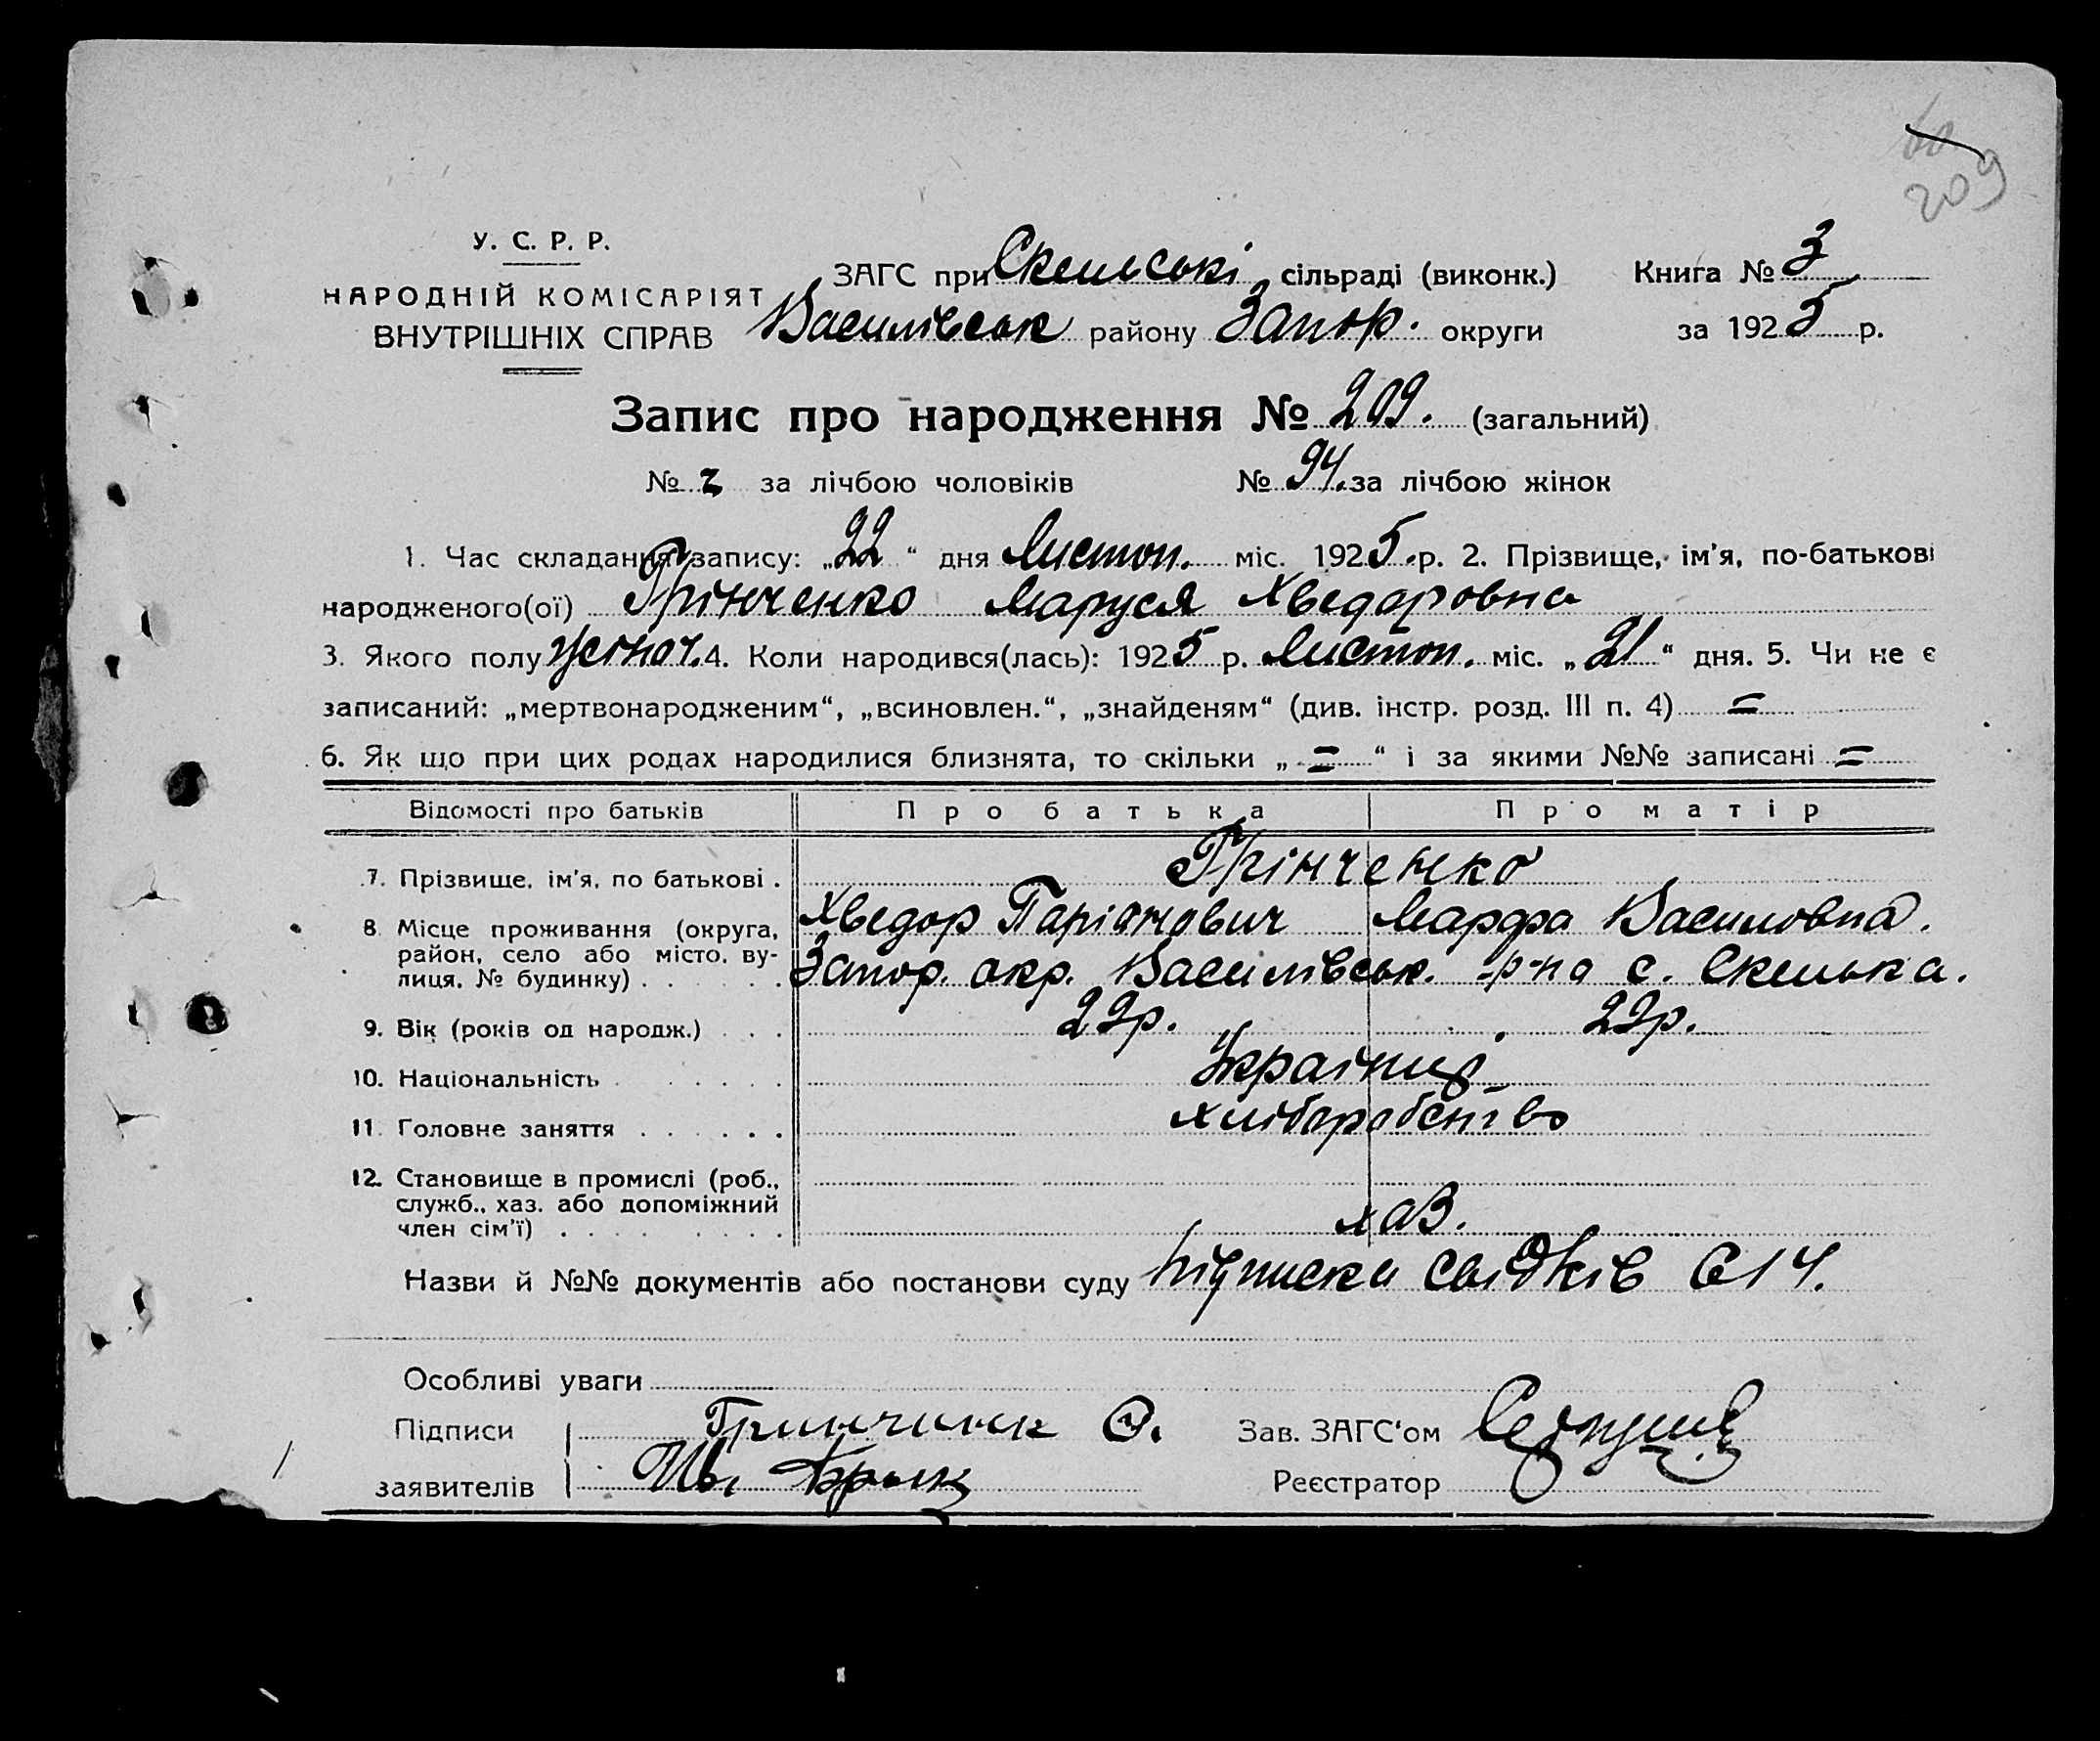 209
У. С. Р. Р.
НАРОДНІЙ КОМІСАРІЯТ
ВНУТРІШНІХ СПРАВ
ЗАГС при Скельські сільраді (виконк.) Книга № 3
Василівськ району Запор. округи за 1925 р.
Запис про народження № 209. (загальний)
№ за лічбою чоловіків № 94. за лічбою жінок
1. Час складання запису: „22“ дня Листоп. міс. 1925 р. 2. Прізвище, ім'я, по-батькові
народженого(ої) Грінченко Маруся Хведоровна
3. Якого полу жіноч. 4. Коли народився(лась): 1925 р. Листоп. міс. „21“ дня. 5. Чи не є
записаний: „мертвонародженим“, „всиновлен.“, „знайденям“ (див. інстр. розд. III п. 4) =
6. Як що при цих родах народилися близнята, то скільки „=“ і за якими №№ записані =
Відомості про батьків Про батька Про матір
7. Прізвище, ім'я, по батькові . Грінченко
Хведор Марфа Василовна.
8. Місце проживання (округа, район, село або місто, вулиця, № будинку) . . . . . . Запор. окр. Василівськ. р-на с. Скелька.
9. Вік (років од народж.) . . . 22р. 22р.
10. Національність . . . . . . Українці
11. Головне заняття . . . . . . хліборобство
12. Становище в промислі (роб.,
служб., хаз. або допоміжний
член сім'ї) . . . . . . . . хаз.
Назви й №№ документів або постанови суду Підписка свідків
Особливі уваги
Підписи Зав. ЗАГС'ом
заявителів Реєстратор